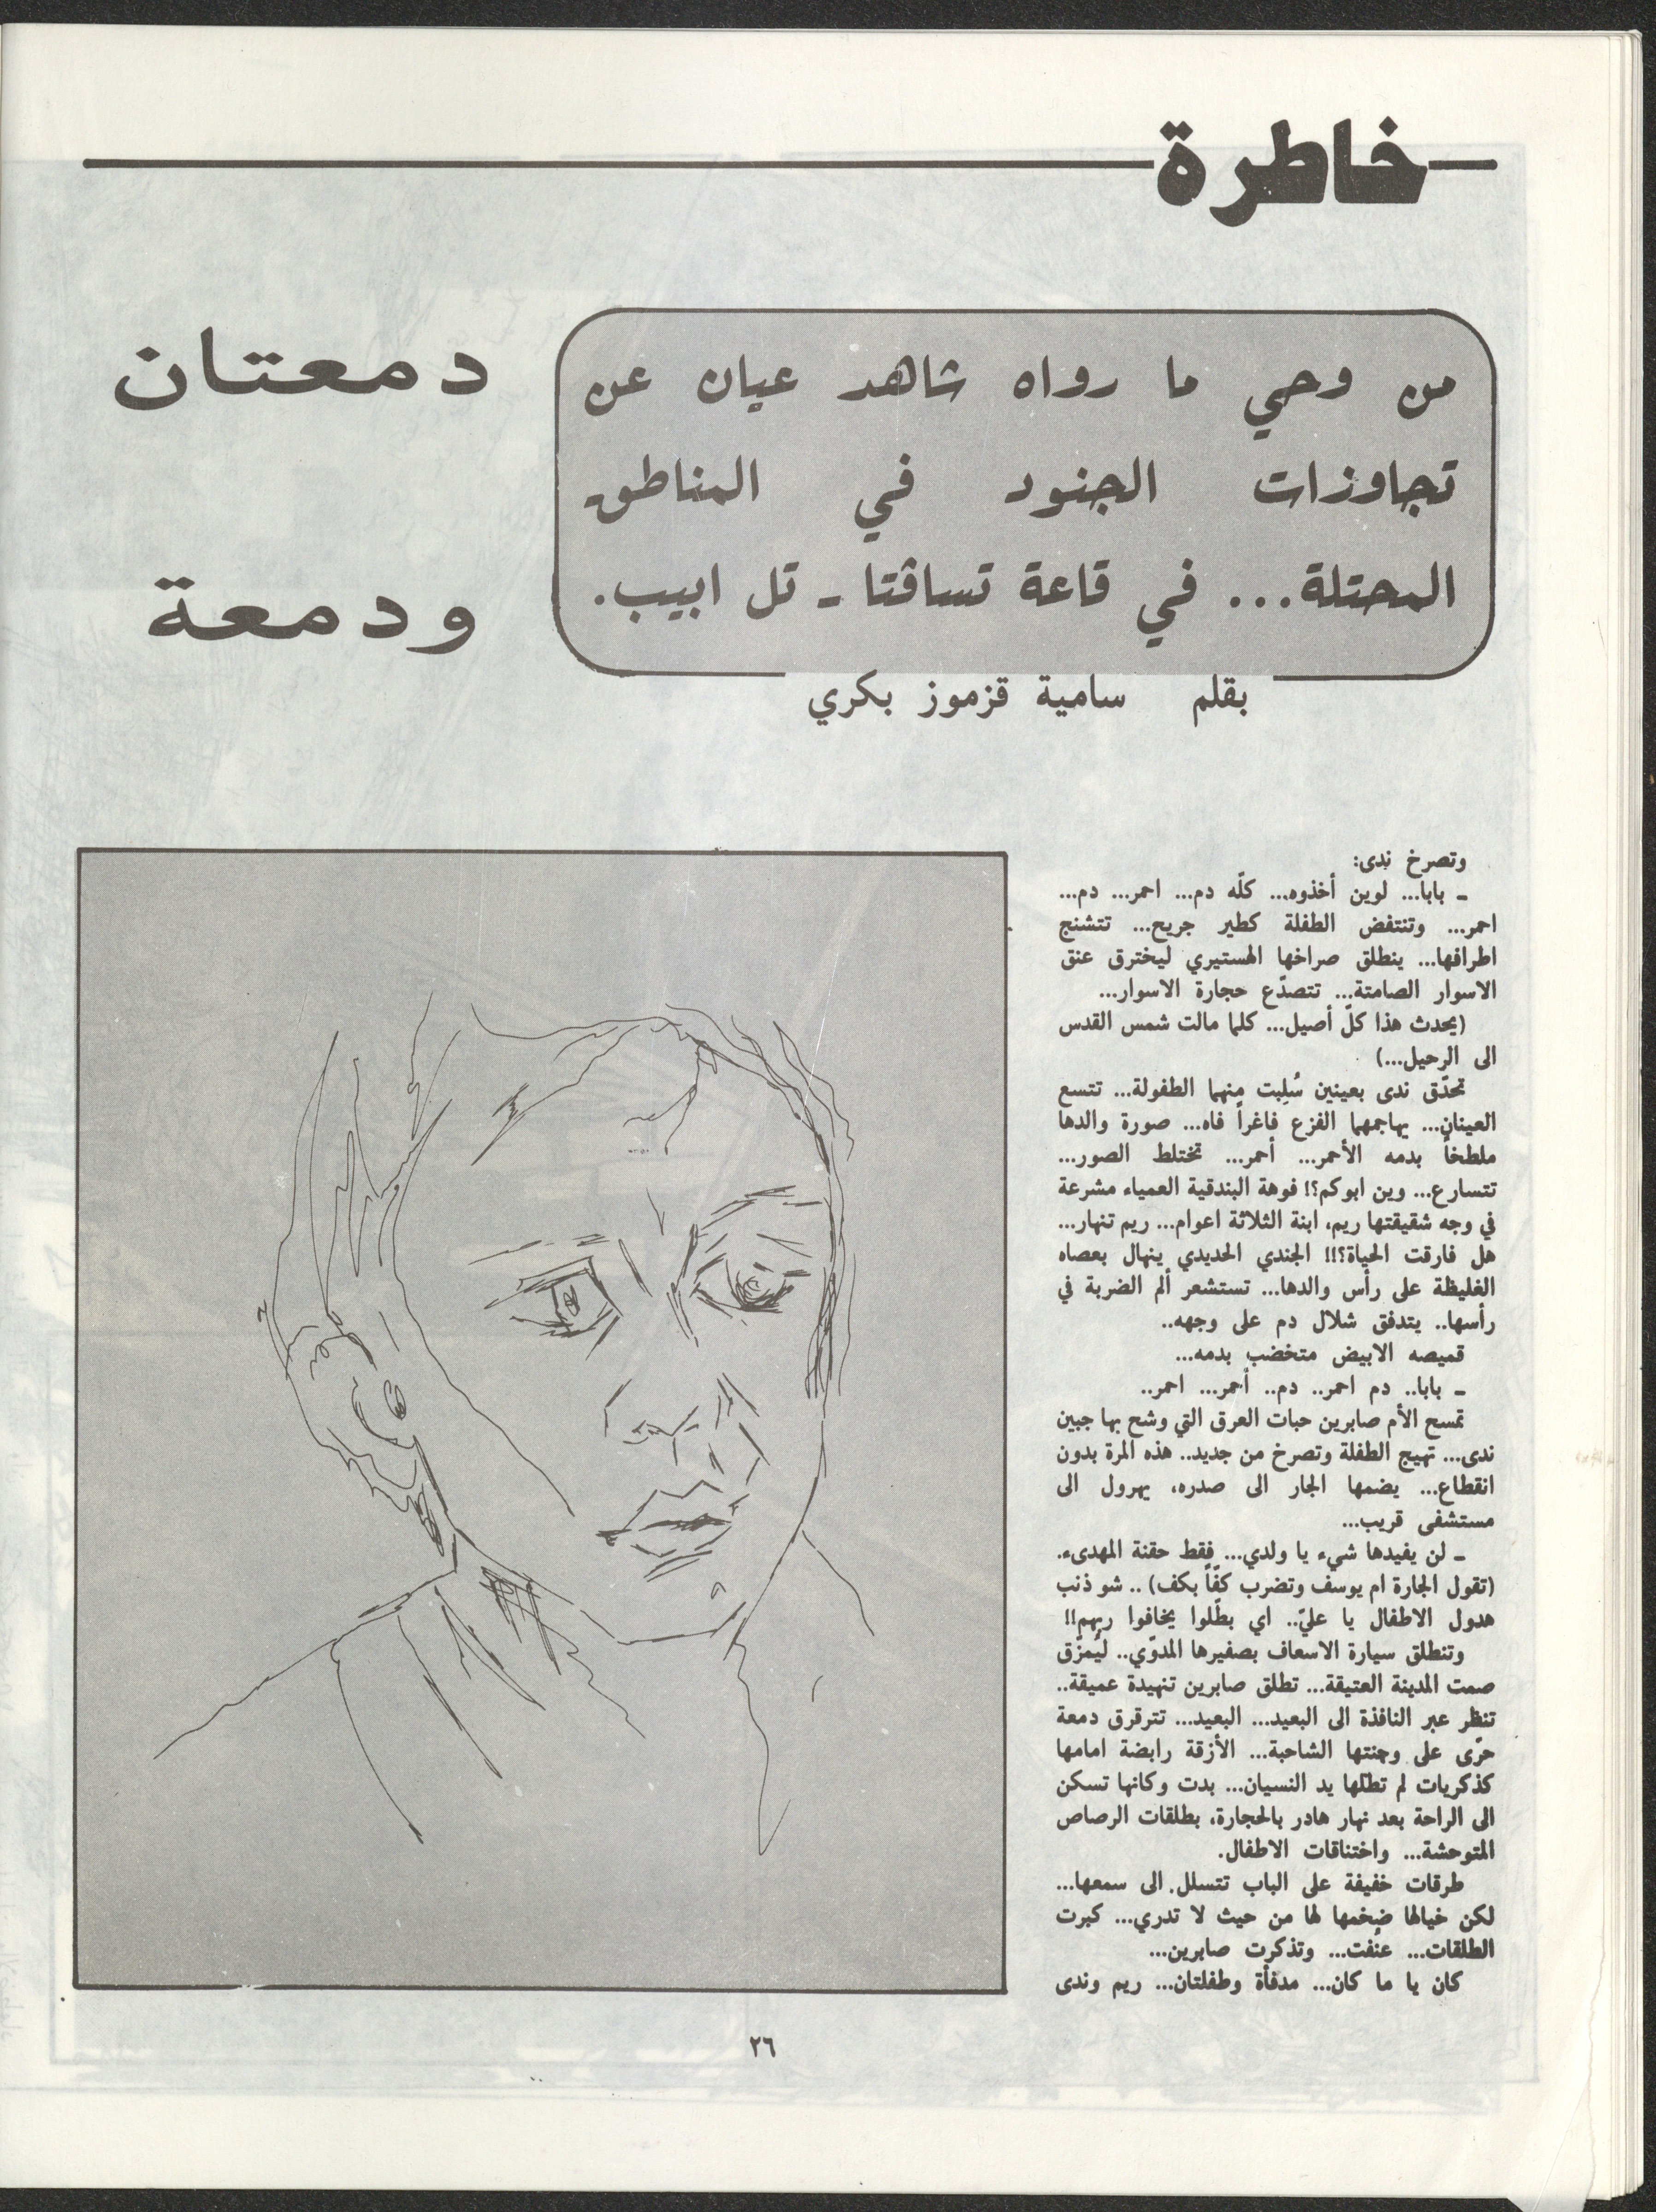 خاطرة
دمعتان
ودمعة
من وحي ما رواه شاهد عيان عن
تجاوزات الجنود في المناطق
المحتلة... في قاعة تساڤتا - تل ابيب.
بقلم سامية قزموز بكري
وتصرخ ندى:
- بابا... لوين أخذوه... كلّه دم... احمر... دم...
احمر... وتنتفض الطفلة كطير جريح... تتشنج
اطرافها... ينطلق صراخها الهستيري ليخترق عنق
الاسوار الصامتة... تتصدّع حجارة الاسوار...
(يحدث هذا كلّ أصيل... كلما مالت شمس القدس
الى الرحيل...)
تحدّق ندى بعينين سُلِبت منهما الطفولة... تتسع
العينان... يهاجمهما الفزع فاغراً فاه... صورة والدها
ملطخاً بدمه الأحمر... أحمر... تختلط الصور...
تتسارع... وين ابوكم؟! فوهة البندقية العمياء مشرعة
في وجه شقيقتها ريم، ابنة الثلاثة اعوام... ريم تنهار...
هل فارقت الحياة؟!! الجندي الحديدي ينهال بعصاه
الغليظة على رأس والدها... تستشعر ألم الضربة في
رأسها.. يتدفق شلال دم على وجهه..
قميصه الابيض متخضب بدمه...
- بابا.. دم احمر.. دم.. أحمر... احمر..
تمسح الأم صابرين حبات العرق التي وشح بها جبين
ندى... تهيج الطفلة وتصرخ من جديد.. هذه المرة بدون
انقطاع... يضمها الجار الى صدره، يهرول الى
مستشفى قريب...
- لن يفيدها شيء يا ولدي... فقط حقنة المهدىء.
(تقول الجارة ام يوسف وتضرب كفّاً بكف) .. شو ذنب
هدول الاطفال يا عليّ.. اي بطّلوا يخافوا ربهم!!
وتنطلق سيارة الاسعاف بصفيرها المدوّي.. ليُمزّق
صمت المدينة العتيقة... تطلق صابرين تنهيدة عميقة..
تنظر عبر النافذة الى البعيد... البعيد... تترقرق دمعة
حرّى على وجنتها الشاحبة... الأزقة رابضة امامها
كذكريات لم تطلها يد النسيان... بدت وكانها تسكن
الى الراحة بعد نهار هادر بالحجارة، بطلقات الرصاص
المتوحشة... واختناقات الاطفال.
طرقات خفيفة على الباب تتسلل الى سمعها...
لكن خيالها ضخمها لها من حيث لا تدري... كبرت
الطلقات... عنفت... وتذكرت صابرين...
كان يا ما كان... مدفأة وطفلتان... ريم وندى
٢٦